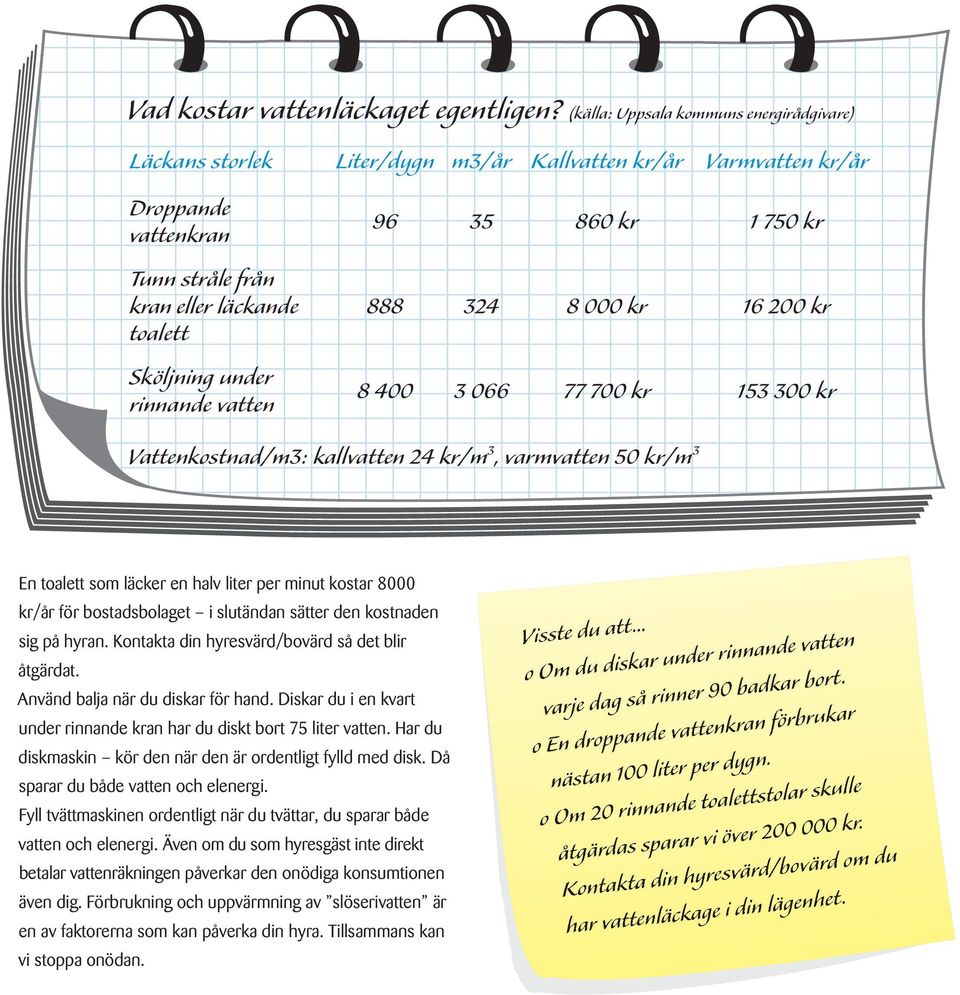 Vad kostar vattenläckaget egentligen? (källa: Uppsala kommuns energirådgivare)
Läckans storlek Liter/dygn m3/år Kallvatten kr/år Varmvatten kr/år
Droppande
vattenkran 96 35 860 kr 1 750 kr
Tunn stråle från
kran eller läckande 888 324 8 000 kr 16 200 kr
toalett
Sköljning under
rinnande vatten 8 400 3 066 77 700 kr 153 300 kr
Vattenkostnad/m3: kallvatten 24 kr/m³, varmvatten 50 kr/m³
En toalett som läcker en halv liter per minut kostar 8000
kr/år för bostadsbolaget – i slutändan sätter den kostnaden
sig på hyran. Kontakta din hyresvärd/bovärd så det blir
åtgärdat.
Använd balja när du diskar för hand. Diskar du i en kvart
under rinnande kran har du diskt bort 75 liter vatten. Har du
diskmaskin – kör den när den är ordentligt fylld med disk. Då
sparar du både vatten och elenergi.
Fyll tvättmaskinen ordentligt när du tvättar, du sparar både
vatten och elenergi. Även om du som hyresgäst inte direkt
betalar vattenräkningen påverkar den onödiga konsumtionen
även dig. Förbrukning och uppvärmning av ”slöserivatten är
en av faktorerna som kan påverka din hyra. Tillsammans kan
vi stoppa onödan.
Visste du att...
o Om du diskar under rinnande vatten
varje dag så rinner 90 badkar bort.
o En droppande vattenkran förbrukar
nästan 100 liter per dygn.
o Om 20 rinnande toalettstolar skulle
åtgärdas sparar vi över 200 000 kr.
Kontakta din hyresvärd/bovärd om du
har vattenläckage i din lägenhet.